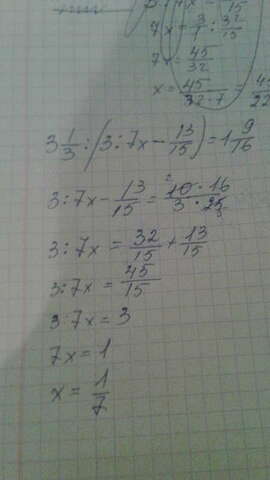 7x = 3/1 : 32/15
7x = 45/32
x = 45/(32·7) =
3 1/3 : (3 : 7x − 13/15) = 1 9/16
3 : 7x − 13/15 = (10 · 16)/(3 · 25)
3 : 7x = 32/15 + 13/15
3 : 7x = 45/15
3 : 7x = 3
7x = 1
x = 1/7